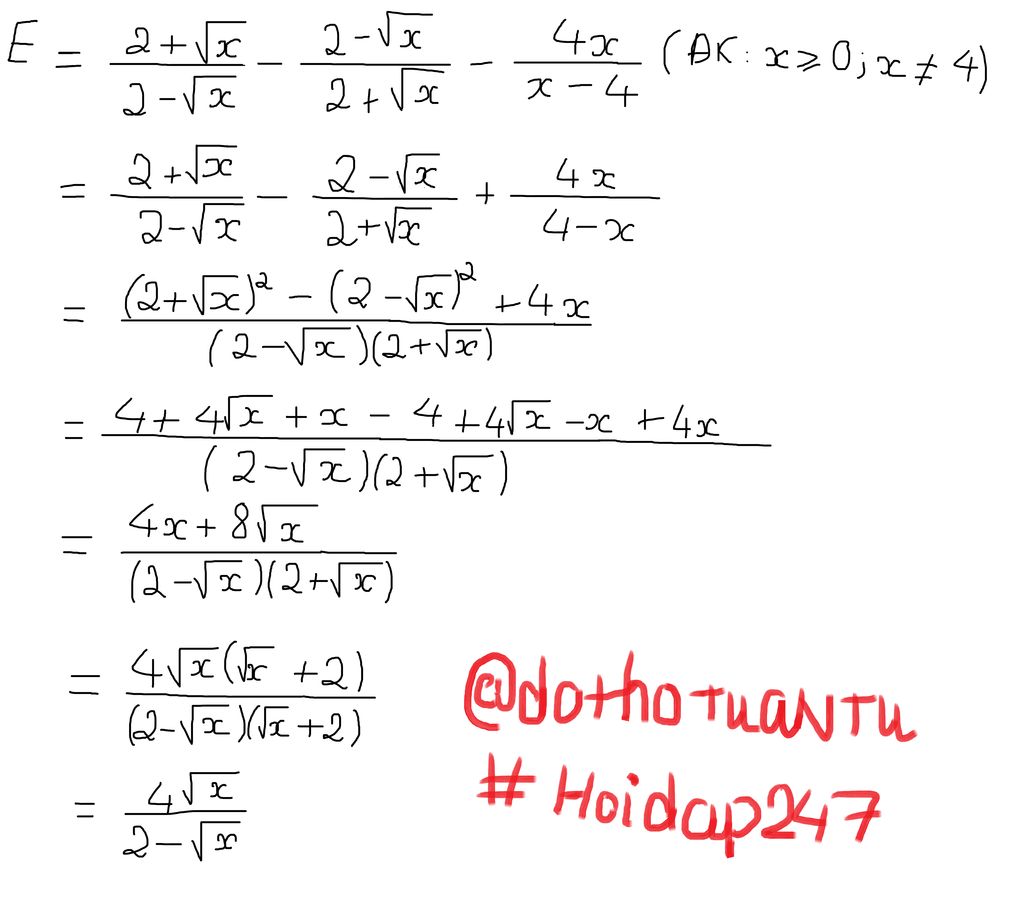 E = (2+√x)/(2-√x) - (2-√x)/(2+√x) - 4x/(x-4) (ĐK: x ≥ 0; x ≠ 4)
= (2+√x)/(2-√x) - (2-√x)/(2+√x) + 4x/(4-x)
= ((2+√x)² - (2-√x)² + 4x)/((2-√x)(2+√x))
= (4+4√x+x-4+4√x-x+4x)/((2-√x)(2+√x))
= (4x+8√x)/((2-√x)(2+√x))
= (4√x(√x+2))/((2-√x)(√x+2))
= 4√x/(2-√x)
@dothotuantu
#Hoidap247